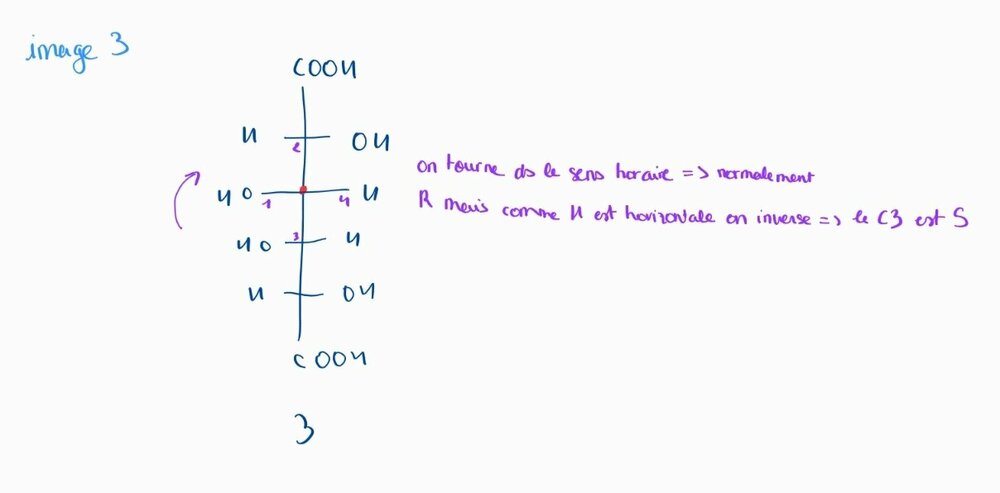 image 3
COOH
H OH
2
HO 1 4 H
HO 3 H
H OH
COOH
3
on tourne ds le sens horaire => normalement
R mais comme H est horizontale on inverse => le C3 est S